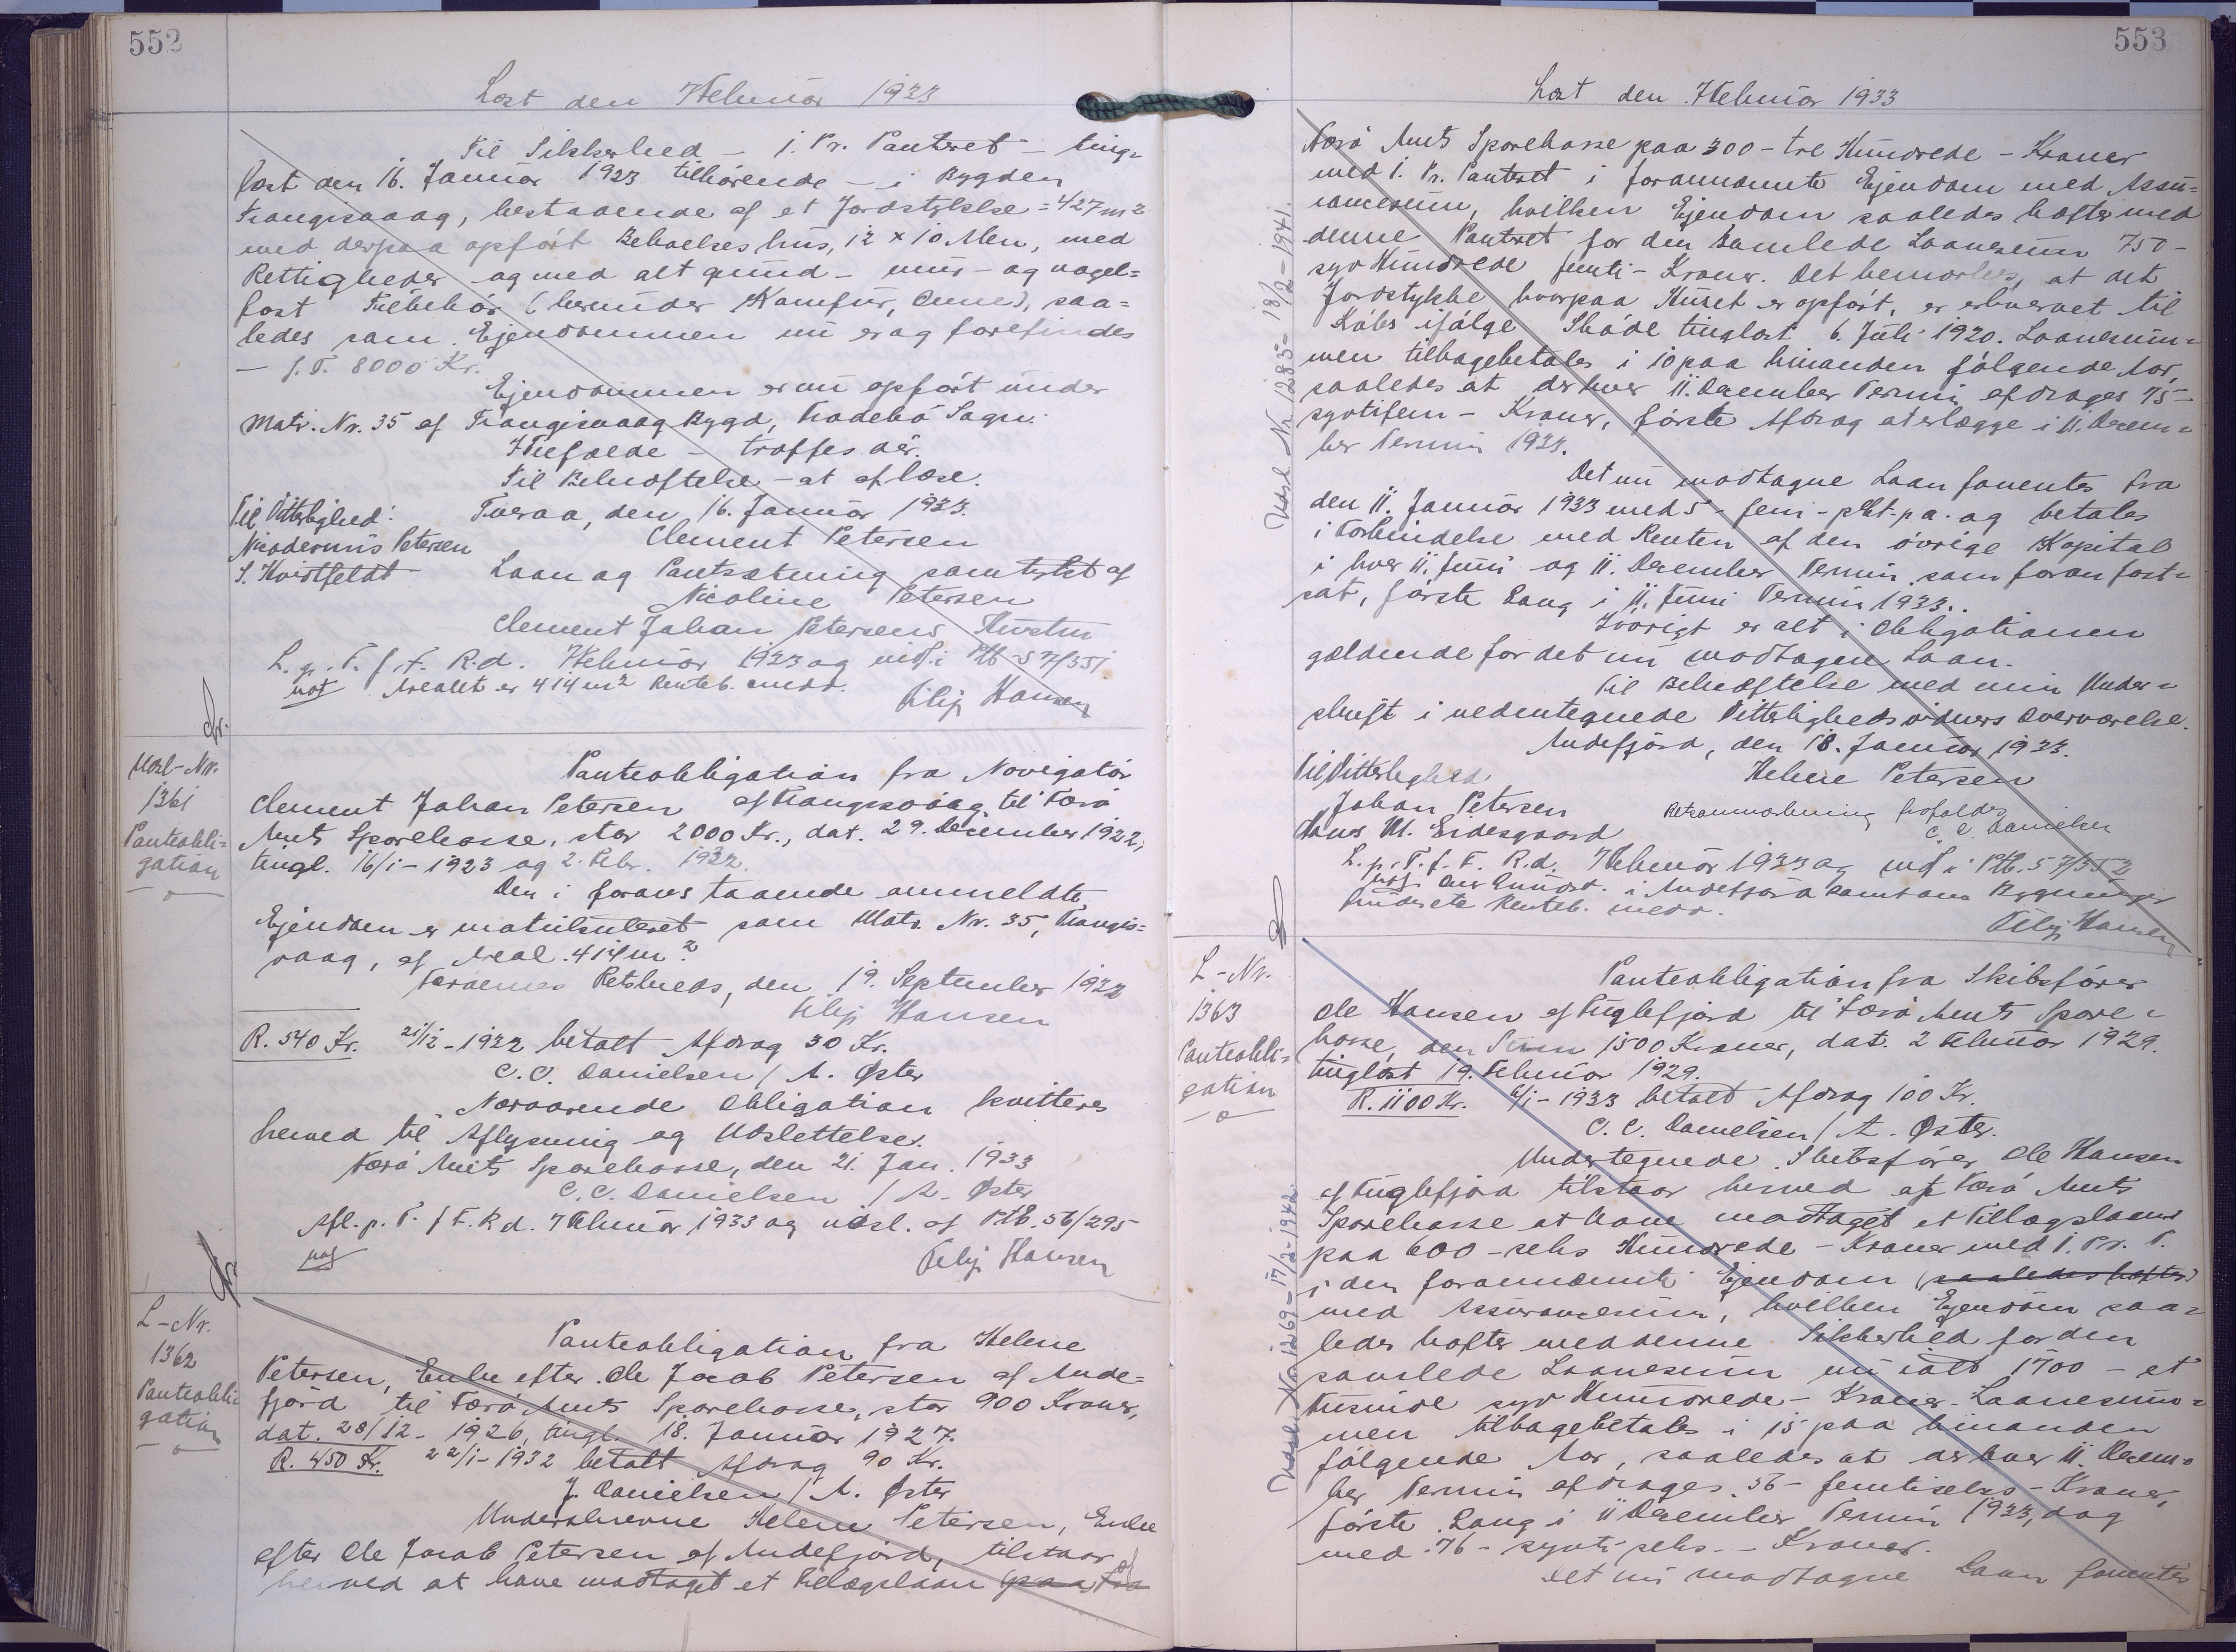 552
Læst den 7 Februar 1933
Til Sikkerhed - 1. Pr. Panteret - ting-
læst den 16. Januar 1923 tilhørende - i Bygden
Trangisvaag, bestaaende af et Jordstykke = 427 m2
med derpaa opført Beboelseshus, 12 x 10 Alen, med
Rettigheder og med alt grund- mur- og nagel-
fast Tilbehör (herunder Komfur, Ovne), saa-
ledes som Ejendommen nu er og forefindes
- f. T. 8000 Kr.
Ejendommen er nu opført under
Matr. Nr. 35 af Trangisvaag Bygd, Frodebö Sogn.
I Tilfælde - træffes dér.
Til Bekræftelse - at aflæse.
Til Vitterlighed: Tveraa, den 16. Januar 1933.
Nicodemus Petersen Clement Petersen
S. Kvistfeldt Laan og Pantsætning samtykket af
Nicoline Petersen
Clement Johan Petersens Hustru
L. p. T. f. F. R.d. 7 Februar 1933 og indf. i Ptb S 7/551
not Arealet er 414 m2 Renteb. medd.
Filip Hansen
Udsl-Nr.
1361
Panteobli-
gation
Panteobligation fra Navigatör
Clement Johan Petersen af Trangisvaag til Færö
Amts Sparekasse, stor 2000 Kr., dat. 29. December 1922,
tingl. 16/1-1923 og 2. Febr. 1932.
Den i foranstaaende ommeldte
Ejendom er matrikuleret som Matr. Nr. 35, Trangis-
vaag, af Areal 414 m2.
Færøernes Retskreds, den 19. September 1932
Filip Hansen
R. 540 Kr. 21/12-1932 betalt Afdrag 30 Kr.
C.C. Danielsen / A. Øster
Nærværende Obligation kvitteres
herved til Aflysning og Udslettelse.
Færö Amts Sparekasse, den 21. Jan. 1933
C.C. Danielsen / A. Øster
Afl. p. T. f F. R d. 7 Februar 1933 og udsl. af Ptb. S6/295
not
Filip Hansen
L-Nr.
1362
Panteobli-
gation
Panteobligation fra Helene
Petersen, Enke efter Ole Jacob Petersen af Ande-
fjörd til Færö Amts Sparekasse, stor 900 Kroner,
dat. 28/12-1926, tingl. 18. Januar 1927.
R. 450 Kr. 22/1-1932 betalt Afdrag 90 Kr.
J. Danielsen / A. Øster
Underskrevne Helene Petersen, Enke
efter Ole Jacob Petersen af Andefjörd, tilstaar
herved at have modtaget et Tillægslaan (paa fra af
553
Læst den 7 Februar 1933
Færö Amts Sparekasse paa 300 - tre Hundrede - Kroner
med 1. Pr. Panteret i forannævnte Ejendom med Assu-
rancesum, hvilken Ejendom saaledes hæfter med
denne Panteret for den samlede Laanesum 750-
syv Hundrede femti - Kroner. Det bemærkes, at det
Jordstykke hvorpaa Huset er opført, er erhvervet til
Köbs ifölge Sköde tinglæst 6. Juli 1920. Laanesum-
men tilbagebetales i 10 paa hinanden fölgende Aar,
saaledes at der hver 11. December Termin afdrages 75-
sytifem - Kroner, förste Afdrag at erlægge i 11. Decem-
ber Termin 1933.
Det nu modtagne Laan forrentes fra
den 11. Januar 1933 med 5 - fem - pCt. p.a. og betales
i Forbindelse med Renten af den övrige Kapital
i hver 11. Juni og 11. December Termin som foran fast-
sat, förste Gang i 11. Juni Termin 1933.
Iövrigt er alt i Obligationen
gældende for det nu modtagne Laan.
Til Bekræftelse med min Under-
skrift i nedentegnede Vitterlighedsvidners Overværelse.
Andefjörd, den 18. Januar 1933.
Til Vitterlighed Helene Petersen
Johan Petersen
Hans M. Eidesgaard Retsanmærkning frafaldes
C.C. Danielsen
L. p. T. f. F. R.d. 7 Februar 1933 og indf. i Ptb. S 7/552
Renteb. medd.
Filip Hansen
Udsl Nr 1285 - 18/2-1941.
L-Nr.
1363
Panteobli-
gation
Panteobligation fra Skibsförer
Ole Hansen af Fuglefjord til Færö Amts Spare-
kasse, den Sum 1500 Kroner, dat. 2 Februar 1929.
tinglæst 19. Februar 1929.
R. 1100 Kr. 6/1-1933 betalt Afdrag 100 Kr.
C.C. Danielsen / A. Øster.
Undertegnede Skibsförer Ole Hansen
af Fuglefjörd tilstaar herved af Færö Amts
Sparekasse at have modtaget et Tillægslaan
paa 600 - seks Hundrede - Kroner med 1. Pr. P.
i den forannævnte Ejendom (saaledes hæfter)
med Assurancesum, hvilken Ejendom saa-
ledes hæfter med denne Sikkerhed for den
samlede Laanesum nu ialt 1700 - et
Tusinde syv Hundrede - Kroner. Laanesum-
men tilbagebetales i 15 paa hinanden
fölgende Aar, saaledes at der hver 11. Decem-
ber Termin afdrages 56 - femtiseks - Kroner,
förste Gang i 11 December Termin 1933, dog
med 76 - syvti seks - Kroner.
Det nu modtagne Laan forrentes
Udsl. Nr 1269 - 17/2-1942.